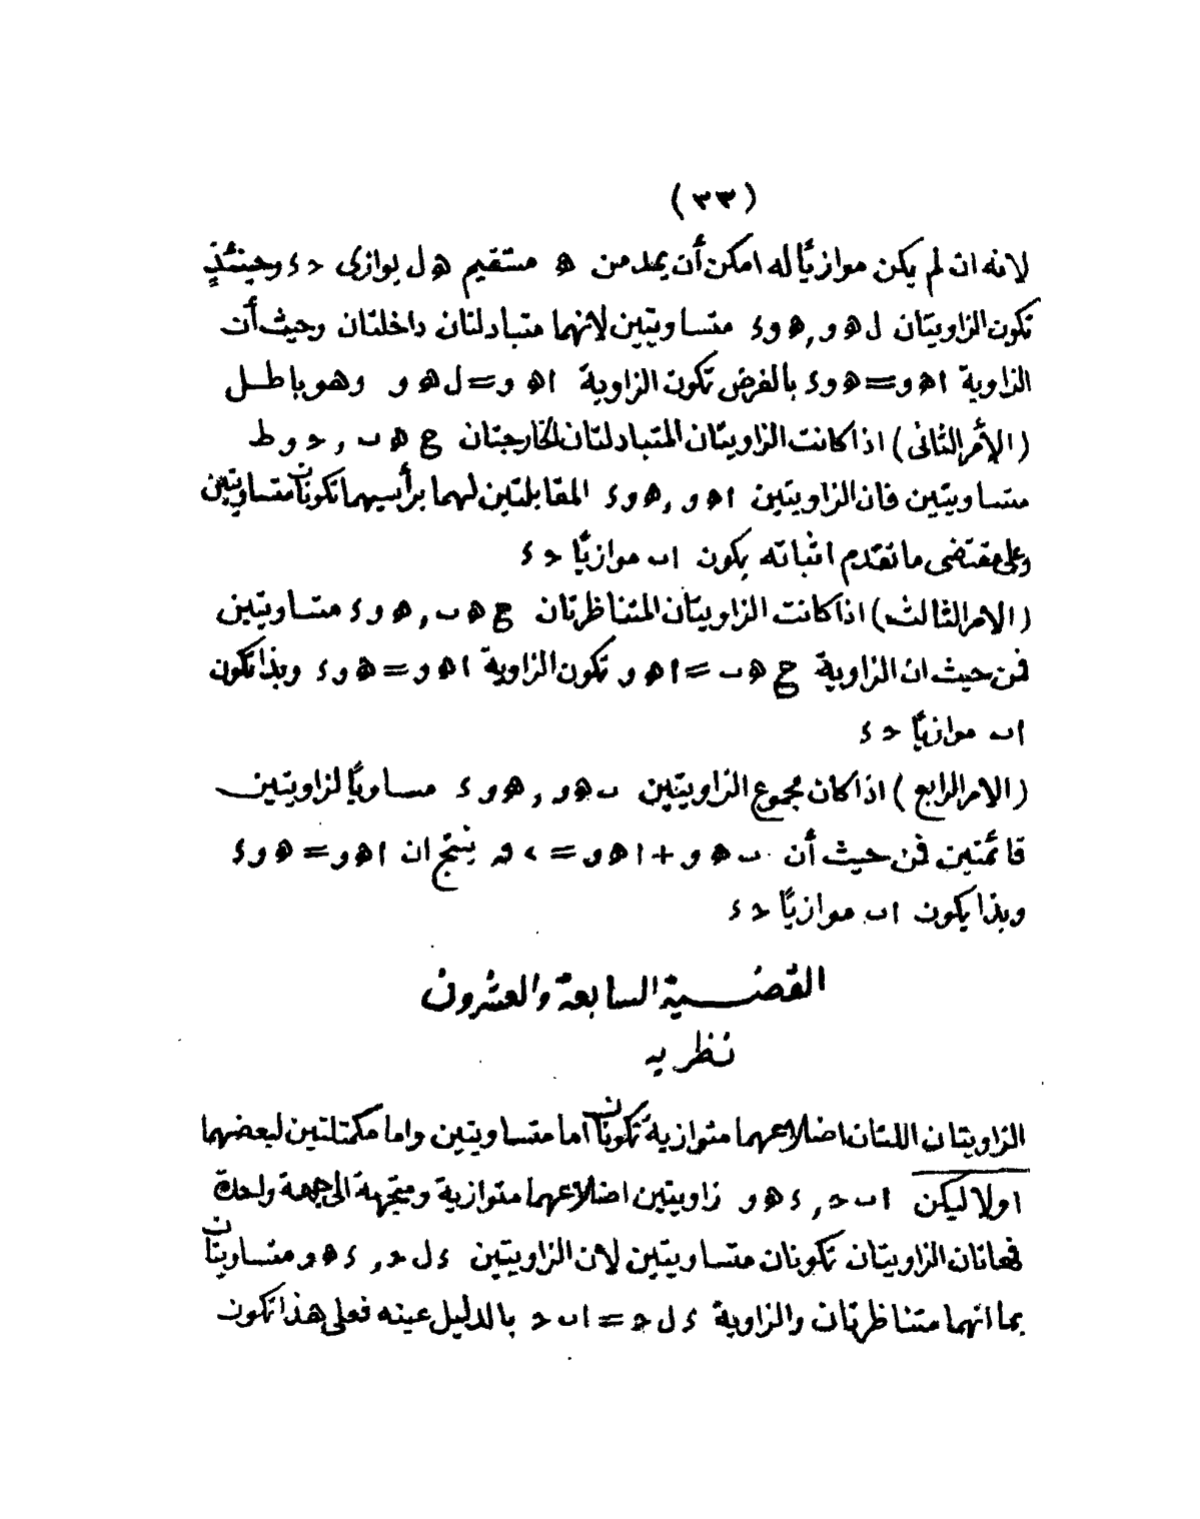 (٣٣)
لانه ان لم يكن موازيًا له امكن أن يمد من ه مستقيم ه ل يوازى حء وحينئذٍ
تكون الزاويتان ل ه و , ه و ء متساويتين لانهما متبادلتان داخلتان وحيث أن
الزاوية ا ه و = ه و ء بالفرض تكون الزاوية ا ه و = ل ه و وهو باطل
(الأمر الثانى) اذا كانت الزاويتان المتبادلتان الخارجتان ح ه ب , ح و ط
متساويتين فان الزاويتين ا ه و , ه و ء المقابلتين لهما برأسيهما تكونان متساويتين
وعلى مقتضى ما تقدم اثباته يكون اب موازيًا حء
(الامر الثالث) اذا كانت الزاويتان المتناظرتان ح ه ب , ه و ء متساويتين
فمن حيث ان الزاوية ح ه ب = ا ه و تكون الزاوية ا ه و = ه و ء وبذا تكون
اب موازيًا حء
(الامر الرابع) اذا كان مجموع الزاويتين ب ه و , ه و ء مساويًا لزاويتين
قائمتين فمن حيث أن ب ه و + ا ه و = ٢ ق ينتج ان ا ه و = ه و ء
وبذا يكون اب موازيًا حء
القضية السابعة والعشرون
نظريه
الزاويتان اللتان اضلاعهما متوازية تكونان اما متساويتين واما مكملتين لبعضهما
اولا ليكن ا ب ح , ء ه و زاويتين اضلاعهما متوازية ومتجهة الى جهة واحدة
فهاتان الزاويتان تكونان متساويتين لأن الزاويتين ء ل ح , ء ه و متساويتان
بما انهما متناظرتان والزاوية ء ل ح = ا ب ح بالدليل عينه فعلى هذا تكون